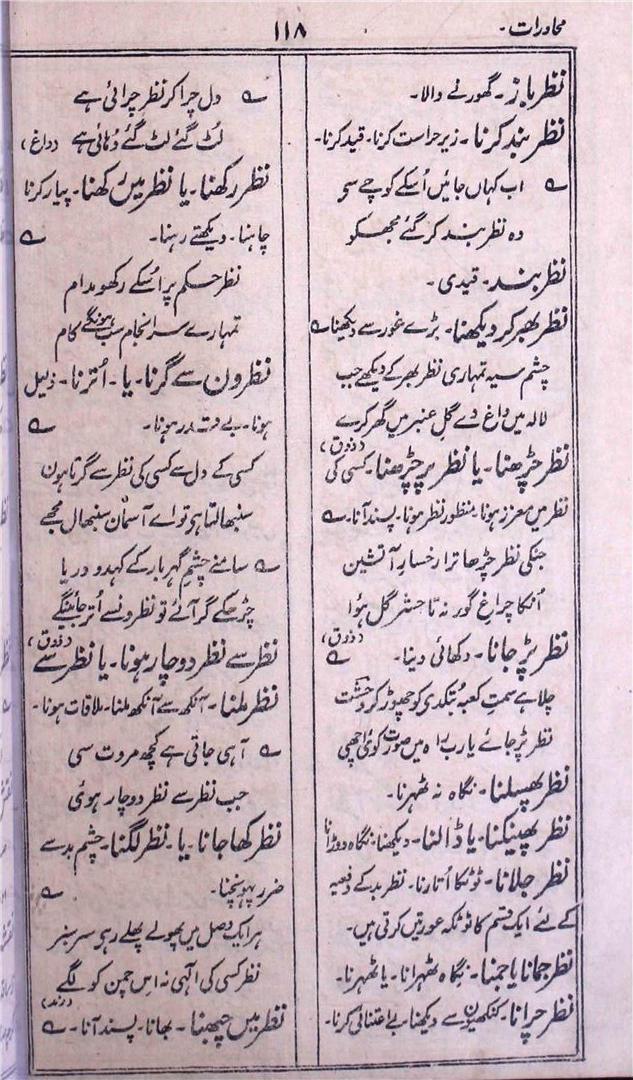 محاورات۔
۱۱۸
نظر باز۔ گھورنے والا۔
نظر بند کرنا۔ زیر حراست کرنا۔ قید کرنا۔
؎ اب کہاں جائیں اُسکے کوچے سے
وہ نظر بند کر گئے مجھکو
نظر بند۔ قیدی۔
نظر بھر کر دیکھنا۔ بڑے غور سے دیکھنا ؎
چشم سیہ تمہاری نظر بھر کے دیکھے جب
لالہ میں داغ دے گل عنبر میں گھر کرے
(ذوق)
نظر چڑھنا۔ یا نظر پر چڑھنا۔ کسی کی
نظر میں معزز ہونا۔ منظور نظر ہونا۔ پسند آنا۔ ؎
جنکی نظر چڑھا ترا رخسار آتشین
اُنکا چراغ گور نہ تا حشر گل ہوا
(ذوق)
نظر پڑ جانا۔ دکھائی دینا۔ ؎
چلا ہے سمت کعبہ بتکدی کو چھوڑ کر
نظر پڑ جائے یارب راہ میں صورت کوئی اچھی
نظر پھسلنا۔ نگاہ نہ ٹھہرنا۔
نظر پھینکنا۔ یا ڈالنا۔ دیکھنا۔ نگاہ دوڑانا
نظر جلانا۔ ٹوٹکا اُتارنا۔ نظر بد کے دفعیہ
کے لئے ایک قسم کا ٹوٹکہ عورتیں کرتی ہیں۔
نظر جمانا یا جمنا۔ نگاہ ٹھہرانا۔ یا ٹھہرنا۔
نظر چرانا۔ کنکھیوں سے دیکھنا۔ بے اعتنائی کرنا۔
؎ دل چرا کر نظر چرائی ہے
لٹ گئے لٹ گئے دُہائی ہے (داغ)
نظر رکھنا۔ یا نظر میں رکھنا۔ پیار کرنا
چاہنا۔ دیکھتے رہنا۔ ؎
نظر حکم پر اُسکے رکھو مدام
تمہارے سر انجام سب ہونگے کام
نظرون سے گرنا۔ یا۔ اُترنا۔ ذلیل
ہونا۔ بے قدر ہونا۔ ؎
کسی کے دل سے کسی کی نظر سے گرتا ہون
سنبھالتا ہو تو اے آسمان سنبھال مجھے
؎ سامنے چشم گہر بار کے کہدو دریا
چڑھکے گر آئے تو نظرونسے اُتر جائینگے
(ذوق)
نظر سے نظر دوچار ہونا۔ یا نظر سے
نظر ملنا۔ آنکھ سے آنکھ ملنا۔ ملاقات ہونا۔
؎ آہی جاتی ہے کچھ مروت سی
جب نظر سے نظر دوچار ہوئی
نظر کھا جانا۔ یا۔ نظر لگنا۔ چشم بد سے
ضرر پہونچنا۔ ؎
ہر ایک فصل میں پھولے پھلے رہی سرسبز
نظر کسی کی الٰہی نہ اس چمن کو لگے
(رند)
نظر میں چبھنا۔ بھانا۔ پسند آنا۔ ؎